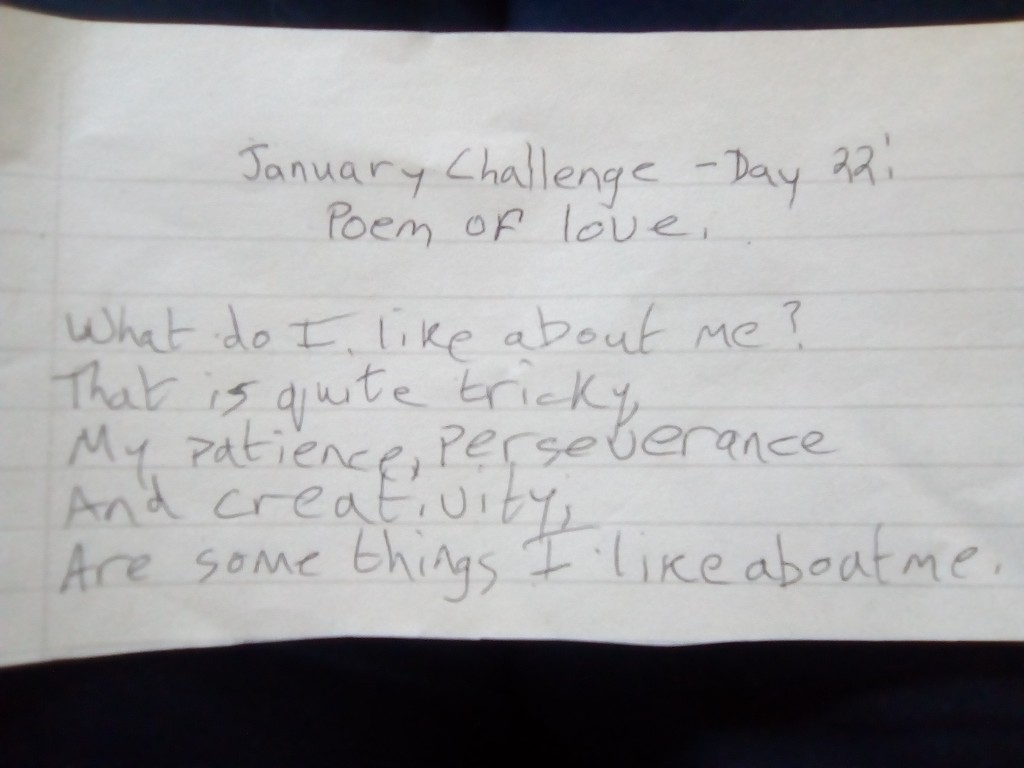 January Challenge - Day 22:
Poem of love.
What do I like about me?
That is quite tricky,
My patience, perseverance
And creativity,
Are some things I like about me.